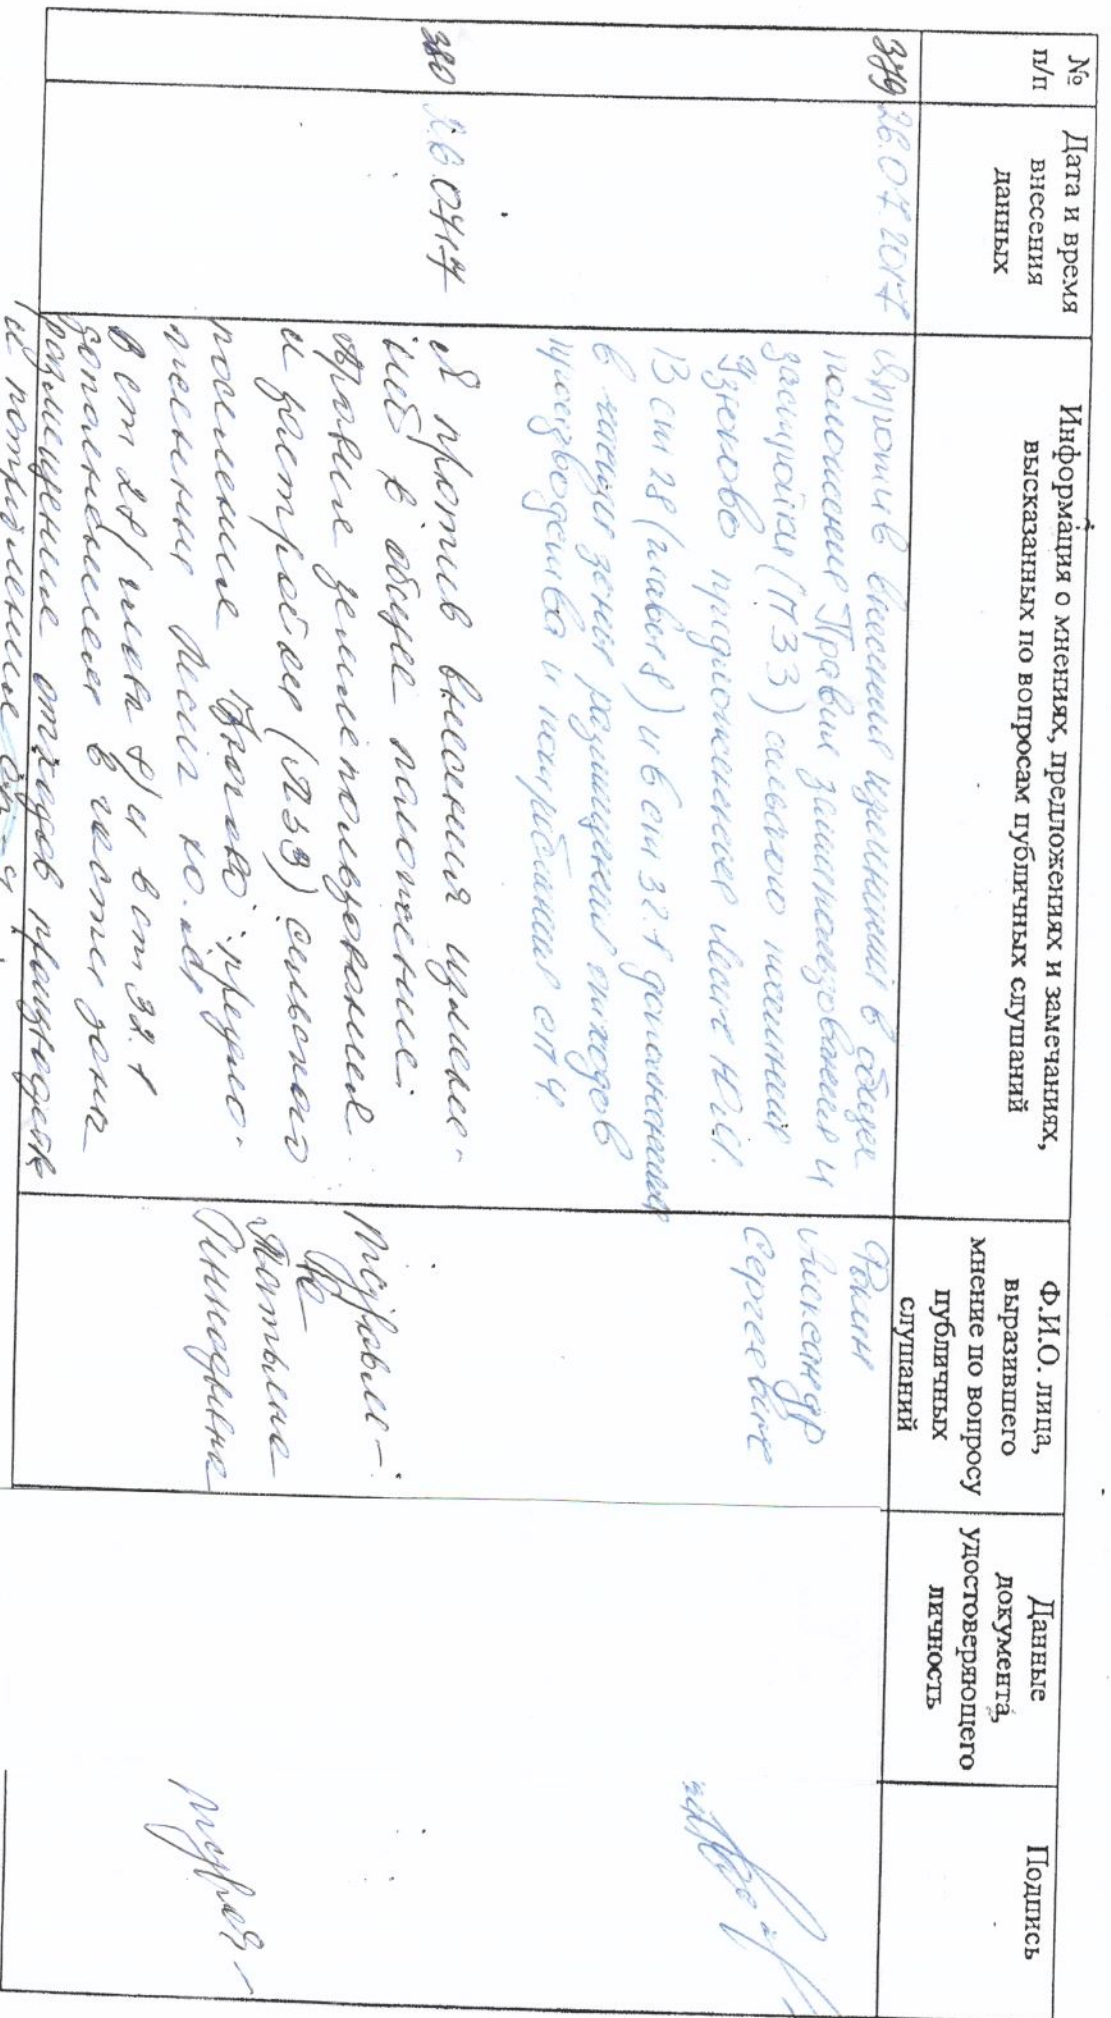 №
п/п
Дата и время
внесения
данных
Информация о мнениях, предложениях и замечаниях,
высказанных по вопросам публичных слушаний
Ф.И.О. лица,
выразившего
мнение по вопросу
публичных
слушаний
Данные
документа,
удостоверяющего
личность
Подпись
379
26.07.2017
Я против внесения изменений в общее
положение Правил землепользования и
застройки (ПЗЗ) сельского поселения
предложенное
В ст 28 (глава 8) и в ст 32.1 дополнения
в части зоны размещения отходов
производства и потребления
Александр
Сергеевич
380
Я против внесения измене-
ний в общее положение
Правил землепользования
и застройки (ПЗЗ) сельского
поселение предло-
В ст 28 (глава 8) и в ст 32.1
дополнение в части зоны
размещение отходов производств
и потребление
Татьяна